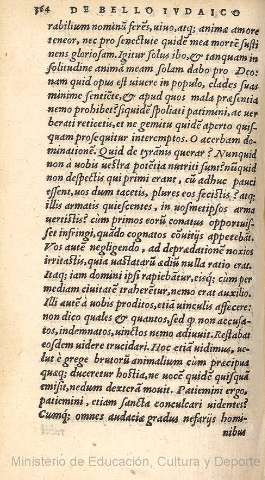 364 DE BELLO IVDAICO
rabilium nominã ferẽs, viuo, atq; anima amore
teneor, nec pro senectute quidẽ mea mortẽ susti
nens gloriosam. Igitur solus ibo, & tanquam in
solitudine animã meam solam dabo pro Deo:
nam quid opus est viuere in populo, clades suas
minime sentiẽte, & apud quos mala præsentia
nemo prohibet? siquidẽ spoliati patimini, ac ver
berati reticetis, et ne gemitu quidẽ aperto quis-
quam prosequitur interemptos. O acerbam do-
minationẽ. Quid de tyrãnis querar? Nunquid
non a vobis vestra potẽtia nutriti sunt? nũquid
non despectis qui primi erant, cũ adhuc pauci
essent, vos dum tacetis, plures eos fecistis? atq;
illis armatis quiescentes, in vosmetipsos arma
vertistis? cum primos eorũ conatus opportuis-
set infringi, quãdo cognatos cõuitijs appetebãt.
Vos autẽ negligendo, ad deprædationẽ noxios
irritastis, quia vastatarũ ædiũ nulla ratio erat.
Itaq; iam domini ipsi rapiebãtur, eisq; cum per
mediam ciuitatẽ traherẽtur, nemo erat auxilio.
Illi autẽ à vobis proditos, etiã vinculis affecere:
non dico quales & quantos, sed ꝙ non accusa-
tos, indemnatos, vinctos nemo adiuuit. Restabat
eosdem videre trucidari. Hoc etiã vidimus, ve-
lut è grege brutorũ animalium cum præcipua
quæq; duceretur hostia, ne vocẽ quidẽ quisquã
emisit, nedum dexterã mouit. Patiemini ergo,
patiemini, etiam sancta conculcari videntes?
Cumq; omnes audacia gradus nefarijs homi-
nibus
Ministerio de Educación, Cultura y Deporte